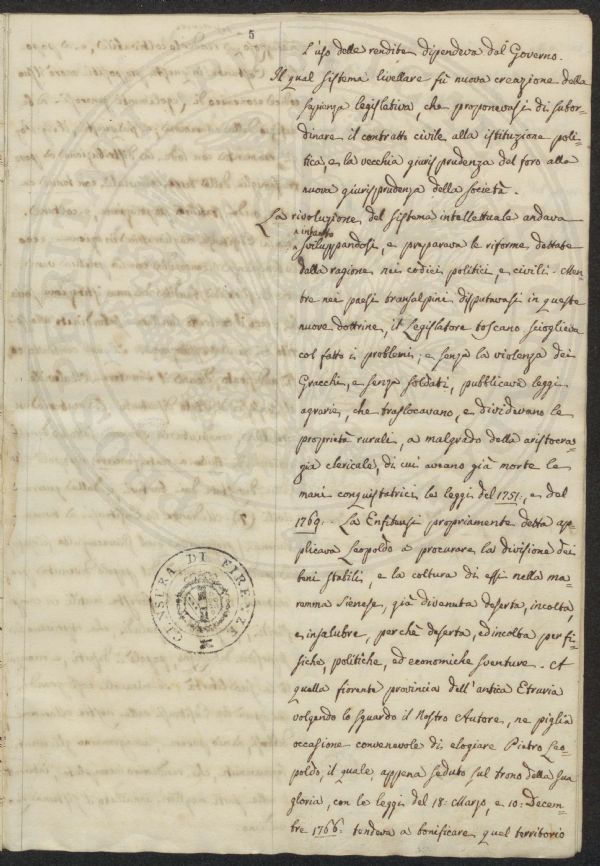 5
L'uso delle rendite dipendeva dal Governo.
Il qual sistema livellare fù nuova creazione della
sapienza legislativa, che proponevasi di subor-
dinare il contratto civile alla istituzione poli-
tica, e la vecchia giurisprudenza del foro alla
nuova giurisprudenza della società.
La rivoluzione del sistema intellettuale andava
intanto
sviluppandosi, e preparava le riforme dettate
dalla ragione nei codici politici, e civili. Men-
tre nei paesi transalpini disputavasi in queste
nuove dottrine, il Legislatore toscano scioglieva
col fatto i problemi; e senza la violenza dei
Gracchi, e senza soldati, pubblicava leggi
agrarie, che traslocavano, e dividevano le
proprietà rurali, a malgrado della aristocra-
zia clericale, di cui aveano già morte le
mani conquistatrici le leggi del 1751, e del
1769. La Enfiteusi propriamente detta ap-
plicava Leopoldo a procurare la divisione dei
beni stabili, e la coltura di essi nella ma-
remma Sienese, già divenuta deserta, incolta,
e insalubre, perchè deserta, ed incolta per fi-
siche, politiche, ed economiche sventure. A
quella fiorente provincia dell'antica Etruria
volgendo lo sguardo il Nostro Autore, ne piglia
occasione convenevole di elogiare Pietro Leo-
poldo, il quale appena seduto sul trono della sua
gloria, con le leggi del 18: Marzo, e 10: Decem-
bre 1766: tendeva a bonificare quel territorio
CENSURA DI FIRENZE